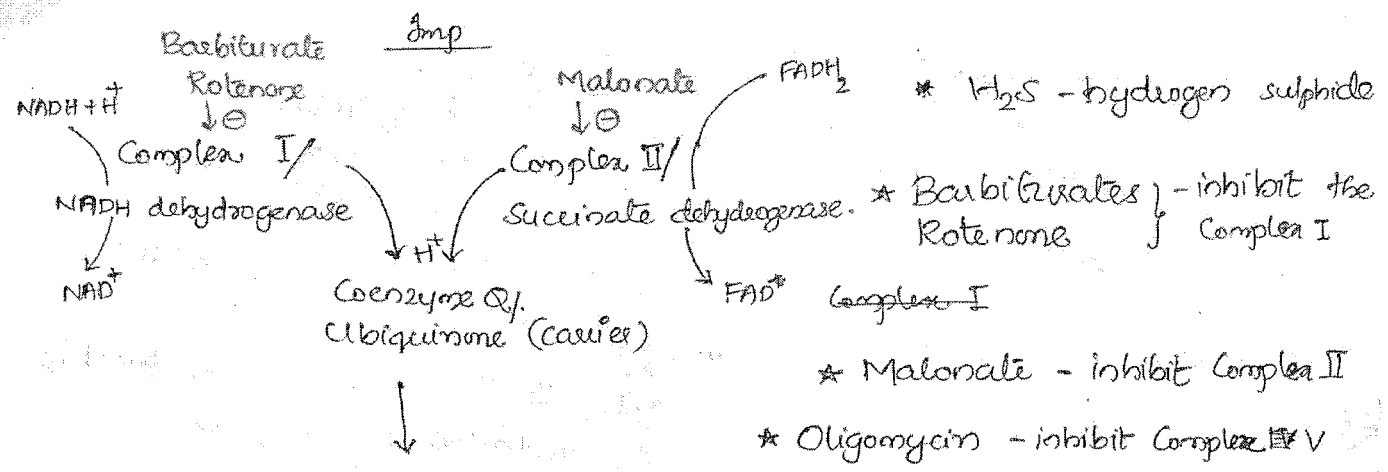 Imp
Barbiturate
Rotenone
↓⊖
NADH + H⁺
Complex I/
NADH dehydrogenase
NAD⁺
Malonate
↓⊖
Complex II/
Succinate dehydrogenase.
FADH₂
FAD⁺
H⁺
Coenzyme Q/.
Ubiquinone (carrier)
* H₂S - hydrogen sulphide
* Barbiturates } - inhibit the
Rotenone Complex I
Complex I
* Malonate - inhibit Complex II
* Oligomycin - inhibit Complex V